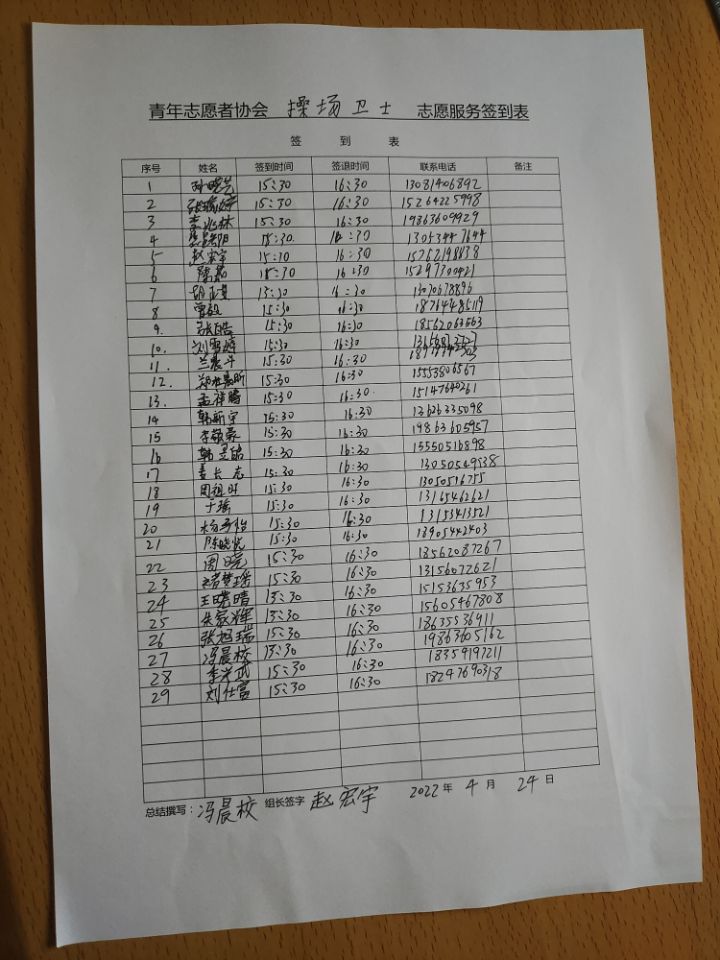 青年志愿者协会 操场卫士 志愿服务签到表
签 到 表
序号 姓名 签到时间 签退时间 联系电话 备注
1 孙晓艺 15:30 16:30 13081406892
2 15:30 16:30 15264225998
3 李兆林 15:30 16:30 19863609929
4 15:30 16:30 13053447644
5 赵宏宇 15:10 16:30
6 15:30 16:30 15297300421
7 15:30 16:30 13070678896
8 曾毅 15:30 16:30 18764485119
9. 张皓 15:30 16:30 18562063563
10. 刘雪婷 15:30 16:30
11. 兰晨斗 15:30 16:30
12. 15:30 16:30 15553806567
13. 孟祥腾 15:30 16:30 15147640261
14 韩新宇 15:30 16:30 13626335098
15 李敬豪 15:30 16:30 19863605957
16 15:30 16:30 15550516898
17 姜长志 15:30 16:30 13050549538
18 周祖旺 15:30 16:30 13050516755
19 于瑶 15:30 16:30 13165462621
20 15:30 16:30 13153413521
21 陈晓悦 15:30 16:30 18905442403
22 周晓 15:30 16:30 18562087267
23 褚楚瑶 15:30 16:30 13156072621
24 王曙晴 15:30 16:30 15153635953
25 朱家辉 15:30 16:30 15605467808
26 张旭瑞 15:30 16:30 18635536911
27 冯晨校 15:30 16:30 19863605162
28 李兴武 15:30 16:30 18359197211
29 刘仕富 15:30 16:30 18247690318
总结撰写：冯晨校 组长签字 赵宏宇 2022年 4 月 24 日